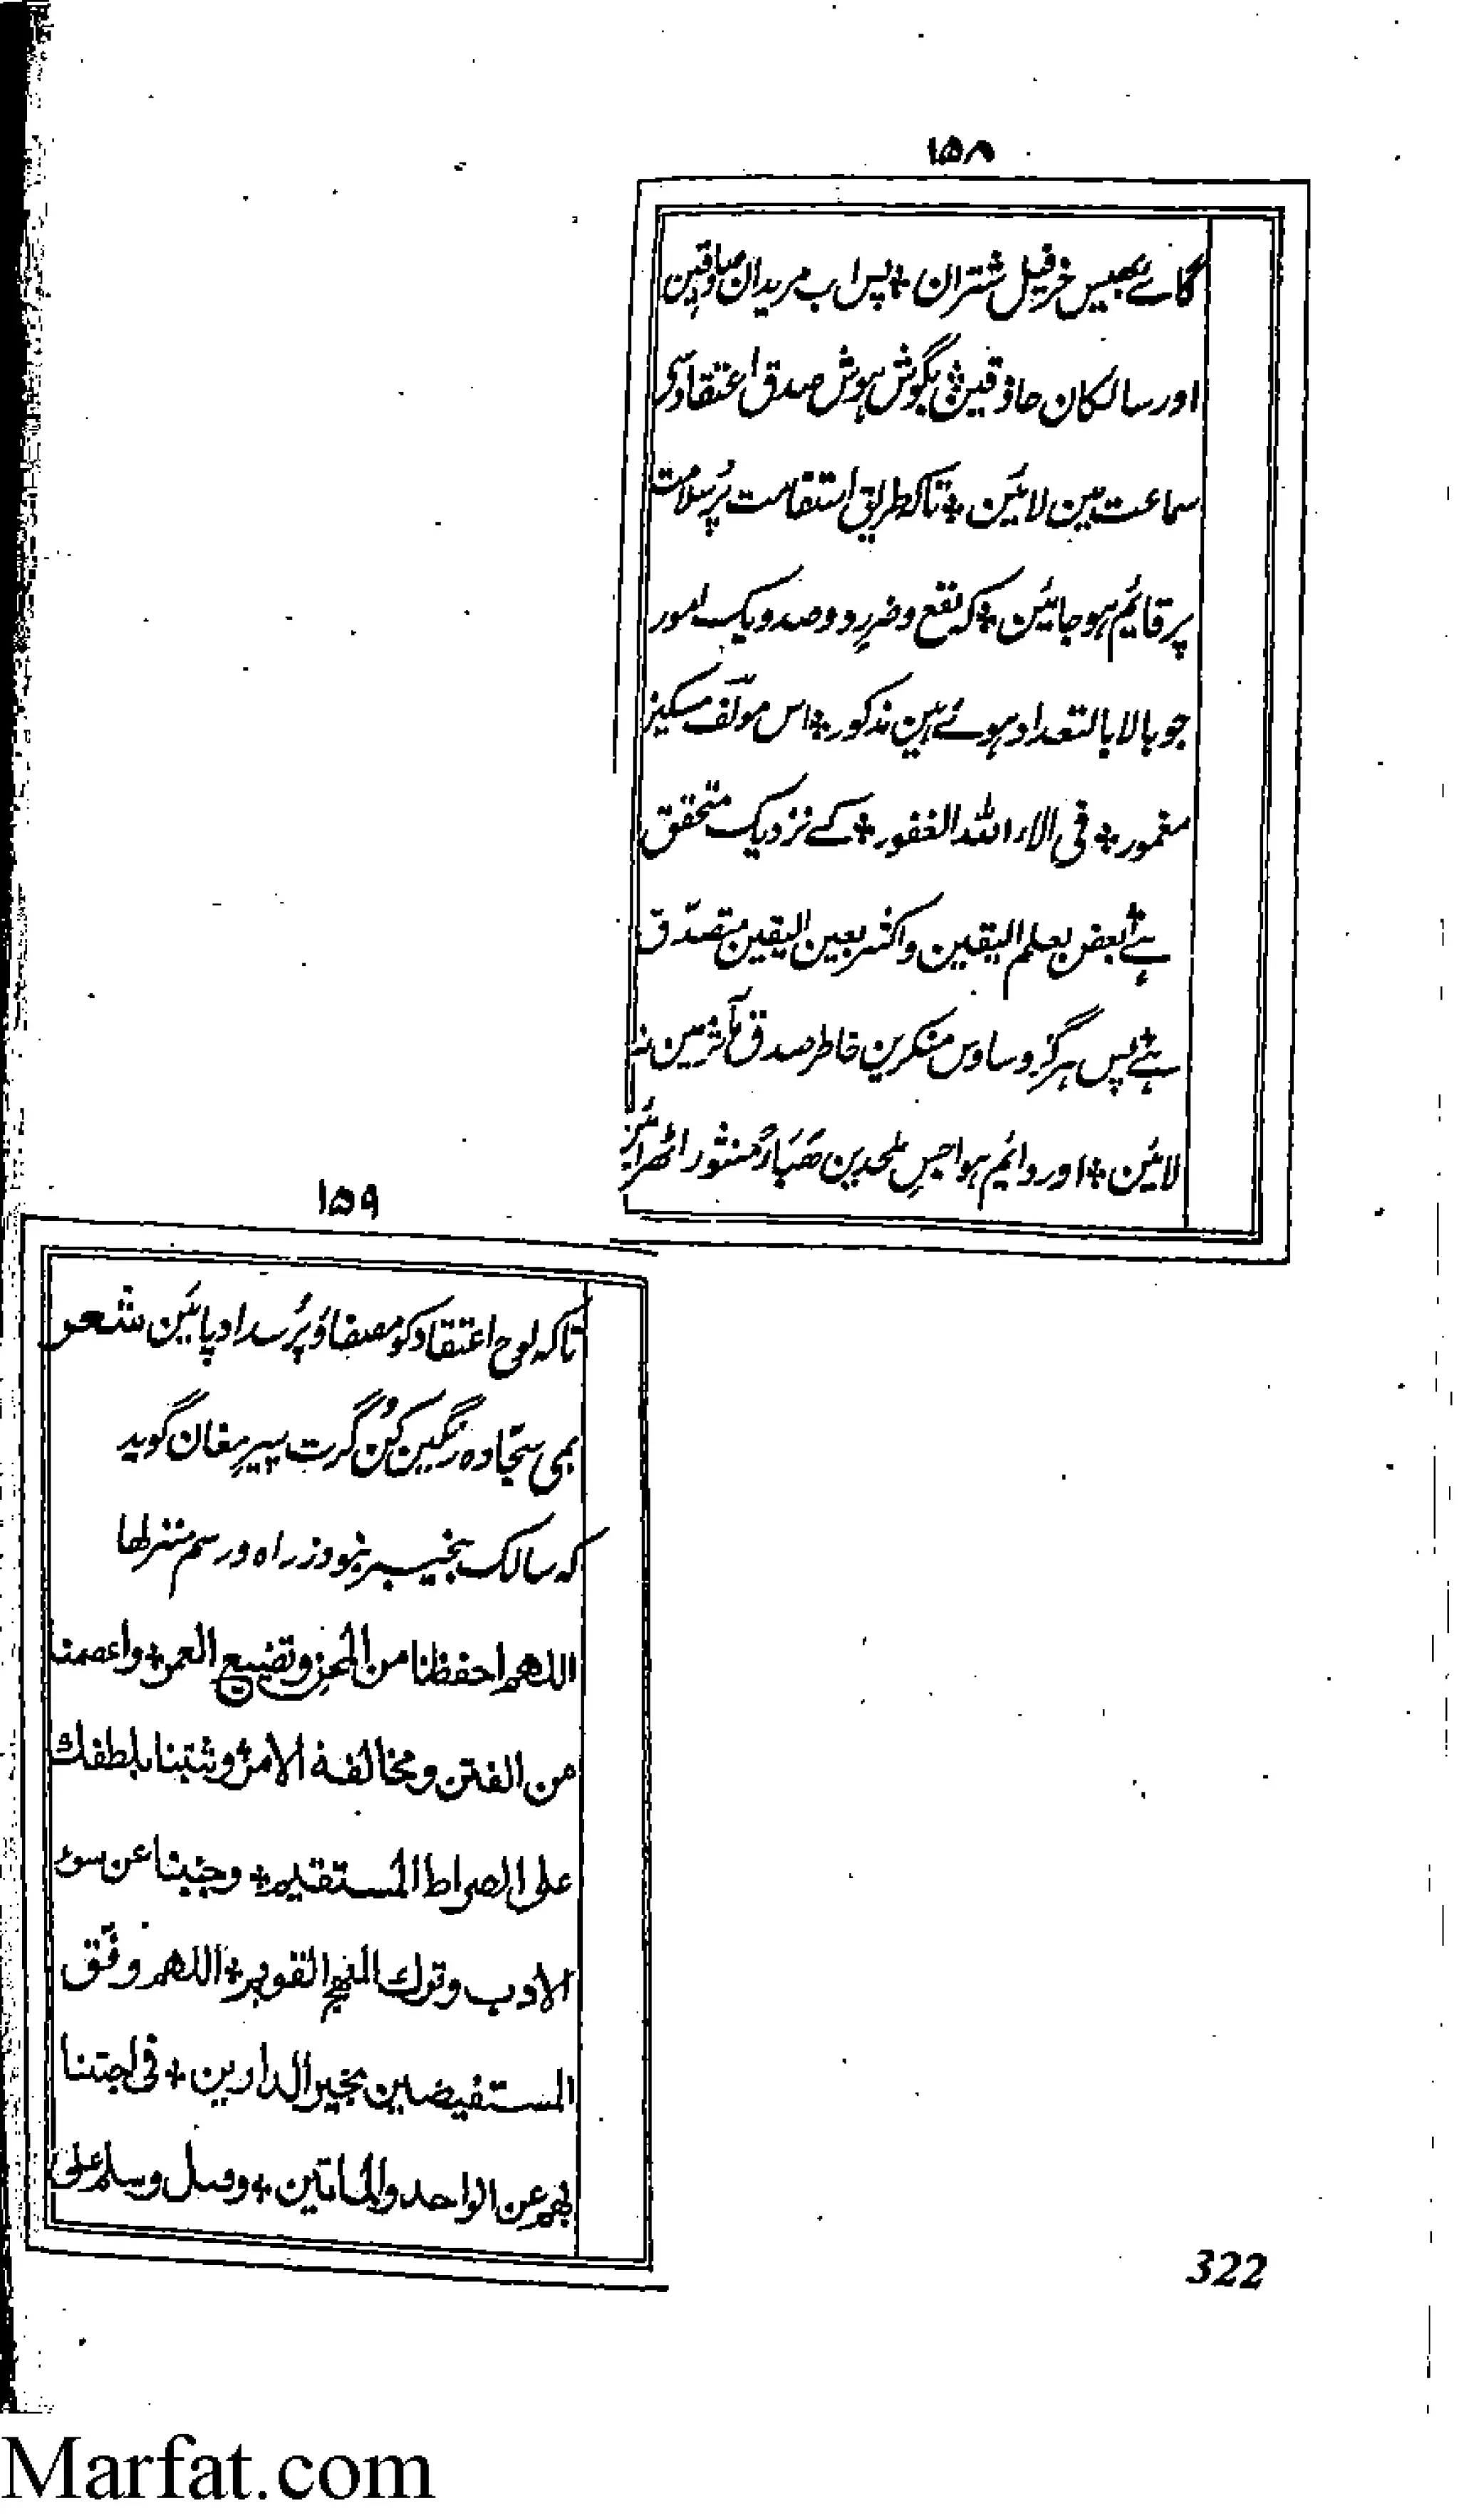 ۱۵۸
گائے بھیس خر فیل شتران ٭ پس اب مریدان صادقین
اور سالکان حاذقین ٭ بگوش ہوش صدق اعتقاد سی
سماعت مین لائین ٭ تاکہ طریق استقامت پر سلامت
پر قایم ہو جائین ٭ کہ نفع و ضرر دو صد و یک امور
جو بالا بالتعداد ہوئے ہین مذکور ٭ اس مولف مسکین
مغمور ٭ فی الاء الله الغفور ٭ کے نزدیک متحقق
ہے بعض بعلم الیقین و اکثر بعین الیقین متصدق
ہے پس ہرگز وساوس منکرین خاطر صدق مآثر مین نہ
لائین ٭ اور دایم ہواجس ملحدین هَبَاءً منثورا ٹھرائین
۱۵۹
تاکہ لوح اعتقاد کو مصفا و پر سداد پائین شعر
بمی سجّادہ رنگین کن گرت پیر مغان گوید
کہ سالک بیخبر نبود ز راہ و رسم منزلها
اللهم احفظنا من المحن وتضییع العمر ٭ واعصمنا
من الفتن ومخالفة الامر ٭ وثبتنا بلطفك
علی الصراط المستقیم ٭ وجنبنا عن سوء
الادب وترك المنهج القویم ٭ اللهم وفق
المستفیضین بخیر الدارین ٭ فی اجتنا
بهم عن الواحد والماتین ٭ وصل وسلم علی
322
Marfat.com